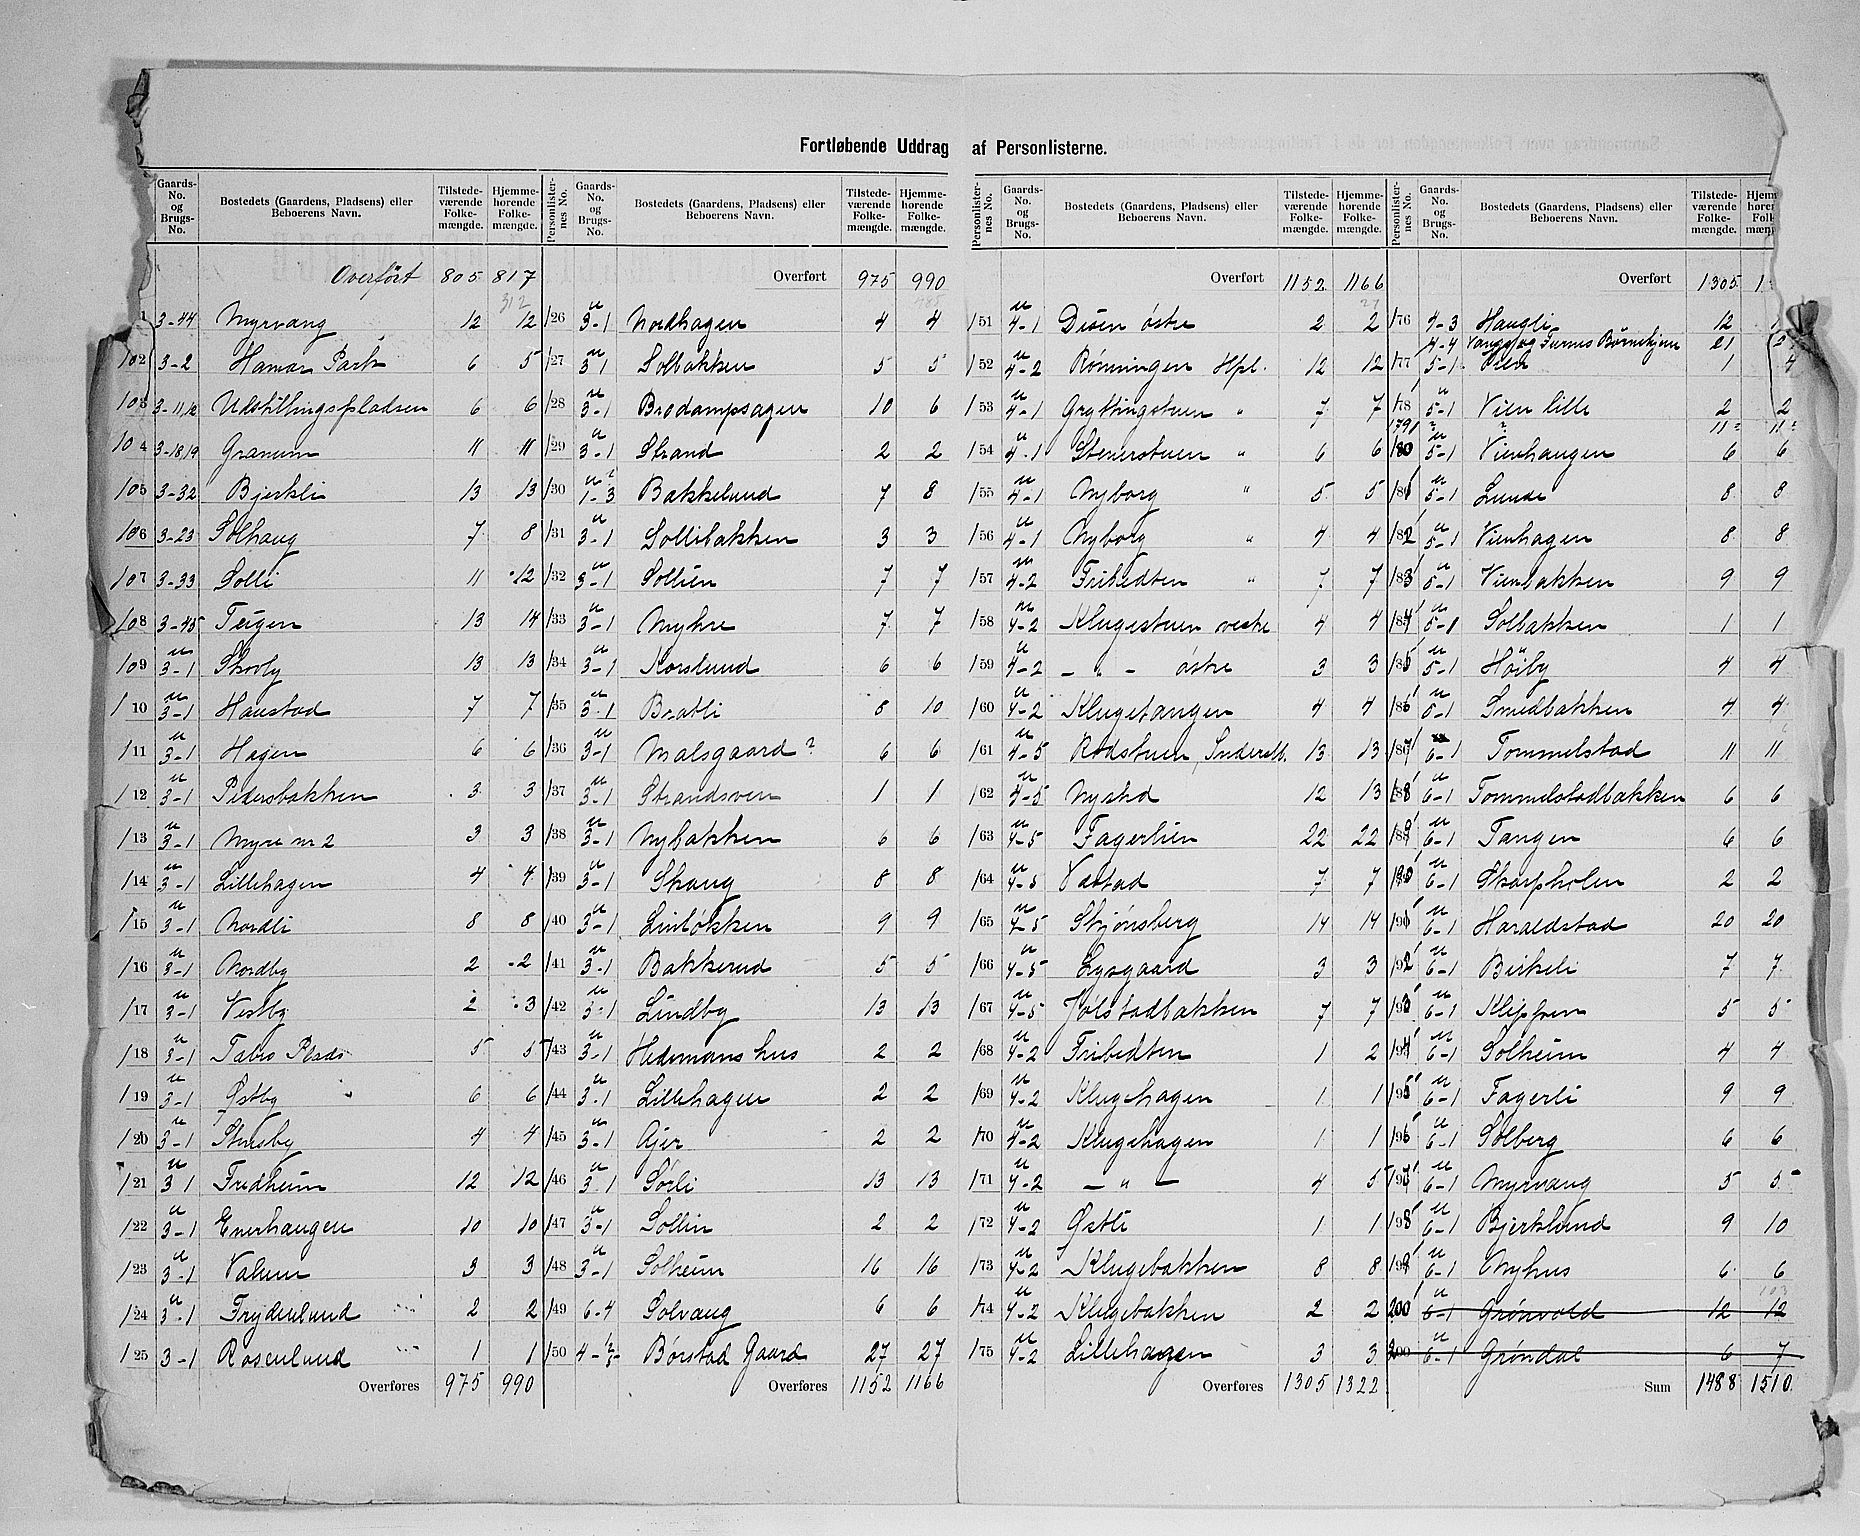 Fortløbende Uddrag af Personlisterne.
Gaards-No. og Brugs-No. Bostedets (Gaardens, Pladsens) eller Beboerens Navn. Tilstedeværende Folkemængde. Hjemmehørende Folkemængde.
Overført 805 817
312
1 3-44 Myrvang 12 12
102 3-2 Hamar Park 6 5
103 3-11,12 Udstillingspladsen 6 6
104 3-18,19 Granum 11 11
105 3-32 Bjerkli 13 13
106 3-23 Solhaug 7 8
107 3-33 Solli 11 12
108 3-45 Teigen 13 14
109 u 3-1 Skovly 13 13
110 u 3-1 Haustad 7 7
111 u 3-1 Hagen 6 6
112 u 3-1 Pedersbakken 3 3
113 u 3-1 Myre nr 2 3 3
114 u 3-1 Lillehagen 4 4
115 u 3-1 Nordli 8 8
116 u 3-1 Nordby 2 2
117 u 3-1 Vestby 2 3
118 u 3-1 Tabro Plads 5 5
119 u 3-1 Østby 6 6
120 u 3-1 Stensby 4 4
121 u 3-1 Fredheim 12 12
122 u 3-1 Enerhaugen 10 10
123 u 3-1 Valum 3 3
124 u 3-1 Frydenlund 2 2
125 3-1 Rosenlund 1 1
Overføres 975 990
Personlisternes No. Gaards-No. og Brugs-No. Bostedets (Gaardens, Pladsens) eller Beboerens Navn. Tilstedeværende Folkemængde. Hjemmehørende Folkemængde.
Overført 975 990
126 u 3-1 Nordhagen 4 4
127 u 3-1 Solbakken 5 5
128 u 3-1 Brodampsagen 10 6
129 u 3-1 Strand 2 2
130 u 1-3 Bakkelund 7 8
131 u 3-1 Sollibakken 3 3
132 u 3-1 Sollien 7 7
133 u 3-1 Myhre 7 7
134 u 3-1 Korslund 6 6
135 u 3-1 Bratli 8 10
136 u 3-1 Malsgaard? 6 6
137 u 3-1 Strandsven 1 1
138 u 3-1 Nybakken 6 6
139 u 3-1 Skaug 8 8
140 u 3-1 Linløkken 9 9
141 u 3-1 Bakkerud 5 5
142 u 3-1 Lindby 13 13
143 u 3-1 Hedemans hus 2 2
144 u 3-1 Lillehagen 2 2
145 u 3-1 Ajer 2 2
146 u 3-1 Sørli 13 13
147 u 3-1 Sollin 2 2
148 u 3-1 Solheim 16 16
149 6-4 Solvang 6 6
150 4-1/3 Børstad Gaard 27 27
Overføres 1152 1166
Personlisternes No. Gaards-No. og Brugs-No. Bostedets (Gaardens, Pladsens) eller Beboerens Navn. Tilstedeværende Folkemængde. Hjemmehørende Folkemængde.
Overført 1152 1166
151 u 4-1 Disen østre 2 2
152 u 4-2 Rønningen Hpl. 12 12
153 u 4-1 Gryttingstuen " 7 7
154 u 4-1 Stenerstuen " 6 6
155 u 4-1 Nyborg " 5 5
156 u 4-1 Nyborg " 4 4
157 u 4-2 Fribedten " 7 7
158 u 4-2 Klugestuen vestre 4 4
159 u 4-2 — " — østre 3 3
160 u 4-2 Klugetangen 4 4
161 u 4-5 Rødstuen, Inderst. 13 13
162 u 4-5 Nysted 12 13
163 u 4-5 Fagerlien 22 22
164 u 4-5 Vestad 7 7
165 u 4-5 Skjønsberg 14 14
166 u 4-5 Lysgaard 3 3
167 u 4-5 Jølstadbakken 7 7
168 u 4-2 Fribedten 1 2
169 u 4-2 Klugehagen 1 1
170 u 4-2 Klugehagen 1 1
171 u 4-2 — " — 4 5
172 u 4-2 Østli 1 1
173 u 4-2 Klugebakken 8 8
174 u 4-2 Klugebakken 2 2
175 u 4-2 Lillehagen 3 3
Overføres 1305 1322
Personlisternes No. Gaards-No. og Brugs-No. Bostedets (Gaardens, Pladsens) eller Beboerens Navn. Tilstedeværende Folkemængde.
Overført 1305 1
176 4-3 Haugli 12 1
4-4 Vangs og Furnes Børnehjem 21
177 5-1 Vien 1 4
178 u 5-1 Vien lille 2 2
179 ? ? 11? 11?
180 u 5-1 Vienhaugen 6 6
181 u 5-1 Lunde 8 8
182 u 5-1 Vienhagen 8 8
183 u 5-1 Vienbakken 9 9
184 u 5-1 Solbakken 1 1
185 u 5-1 Høiby 4 4
186 u 5-1 Smedbakken 4 4
187 6-1 Tommelstad 11 11
188 u 6-1 Tommelstadbakken 6 6
189 u 6-1 Tangen 6 6
190 u 6-1 Skarpholen 2 2
191 u 6-1 Haraldstad 20 20
192 u 6-1 Birkeli 7 7
193 u 6-1 Klippen 5 5
194 u 6-1 Solheim 4 4
195 u 6-1 Fagerli 9 9
196 u 6-1 Solberg 6 6
197 u 6-1 Myrvang 5 5
198 u 6-1 Bjerklund 9 10
199 u 6-1 Nyhus 6 6
200 u 6-1 Grønvold 12 12
200 u 6-1 Grøndal 6 7
Sum 1488 1510